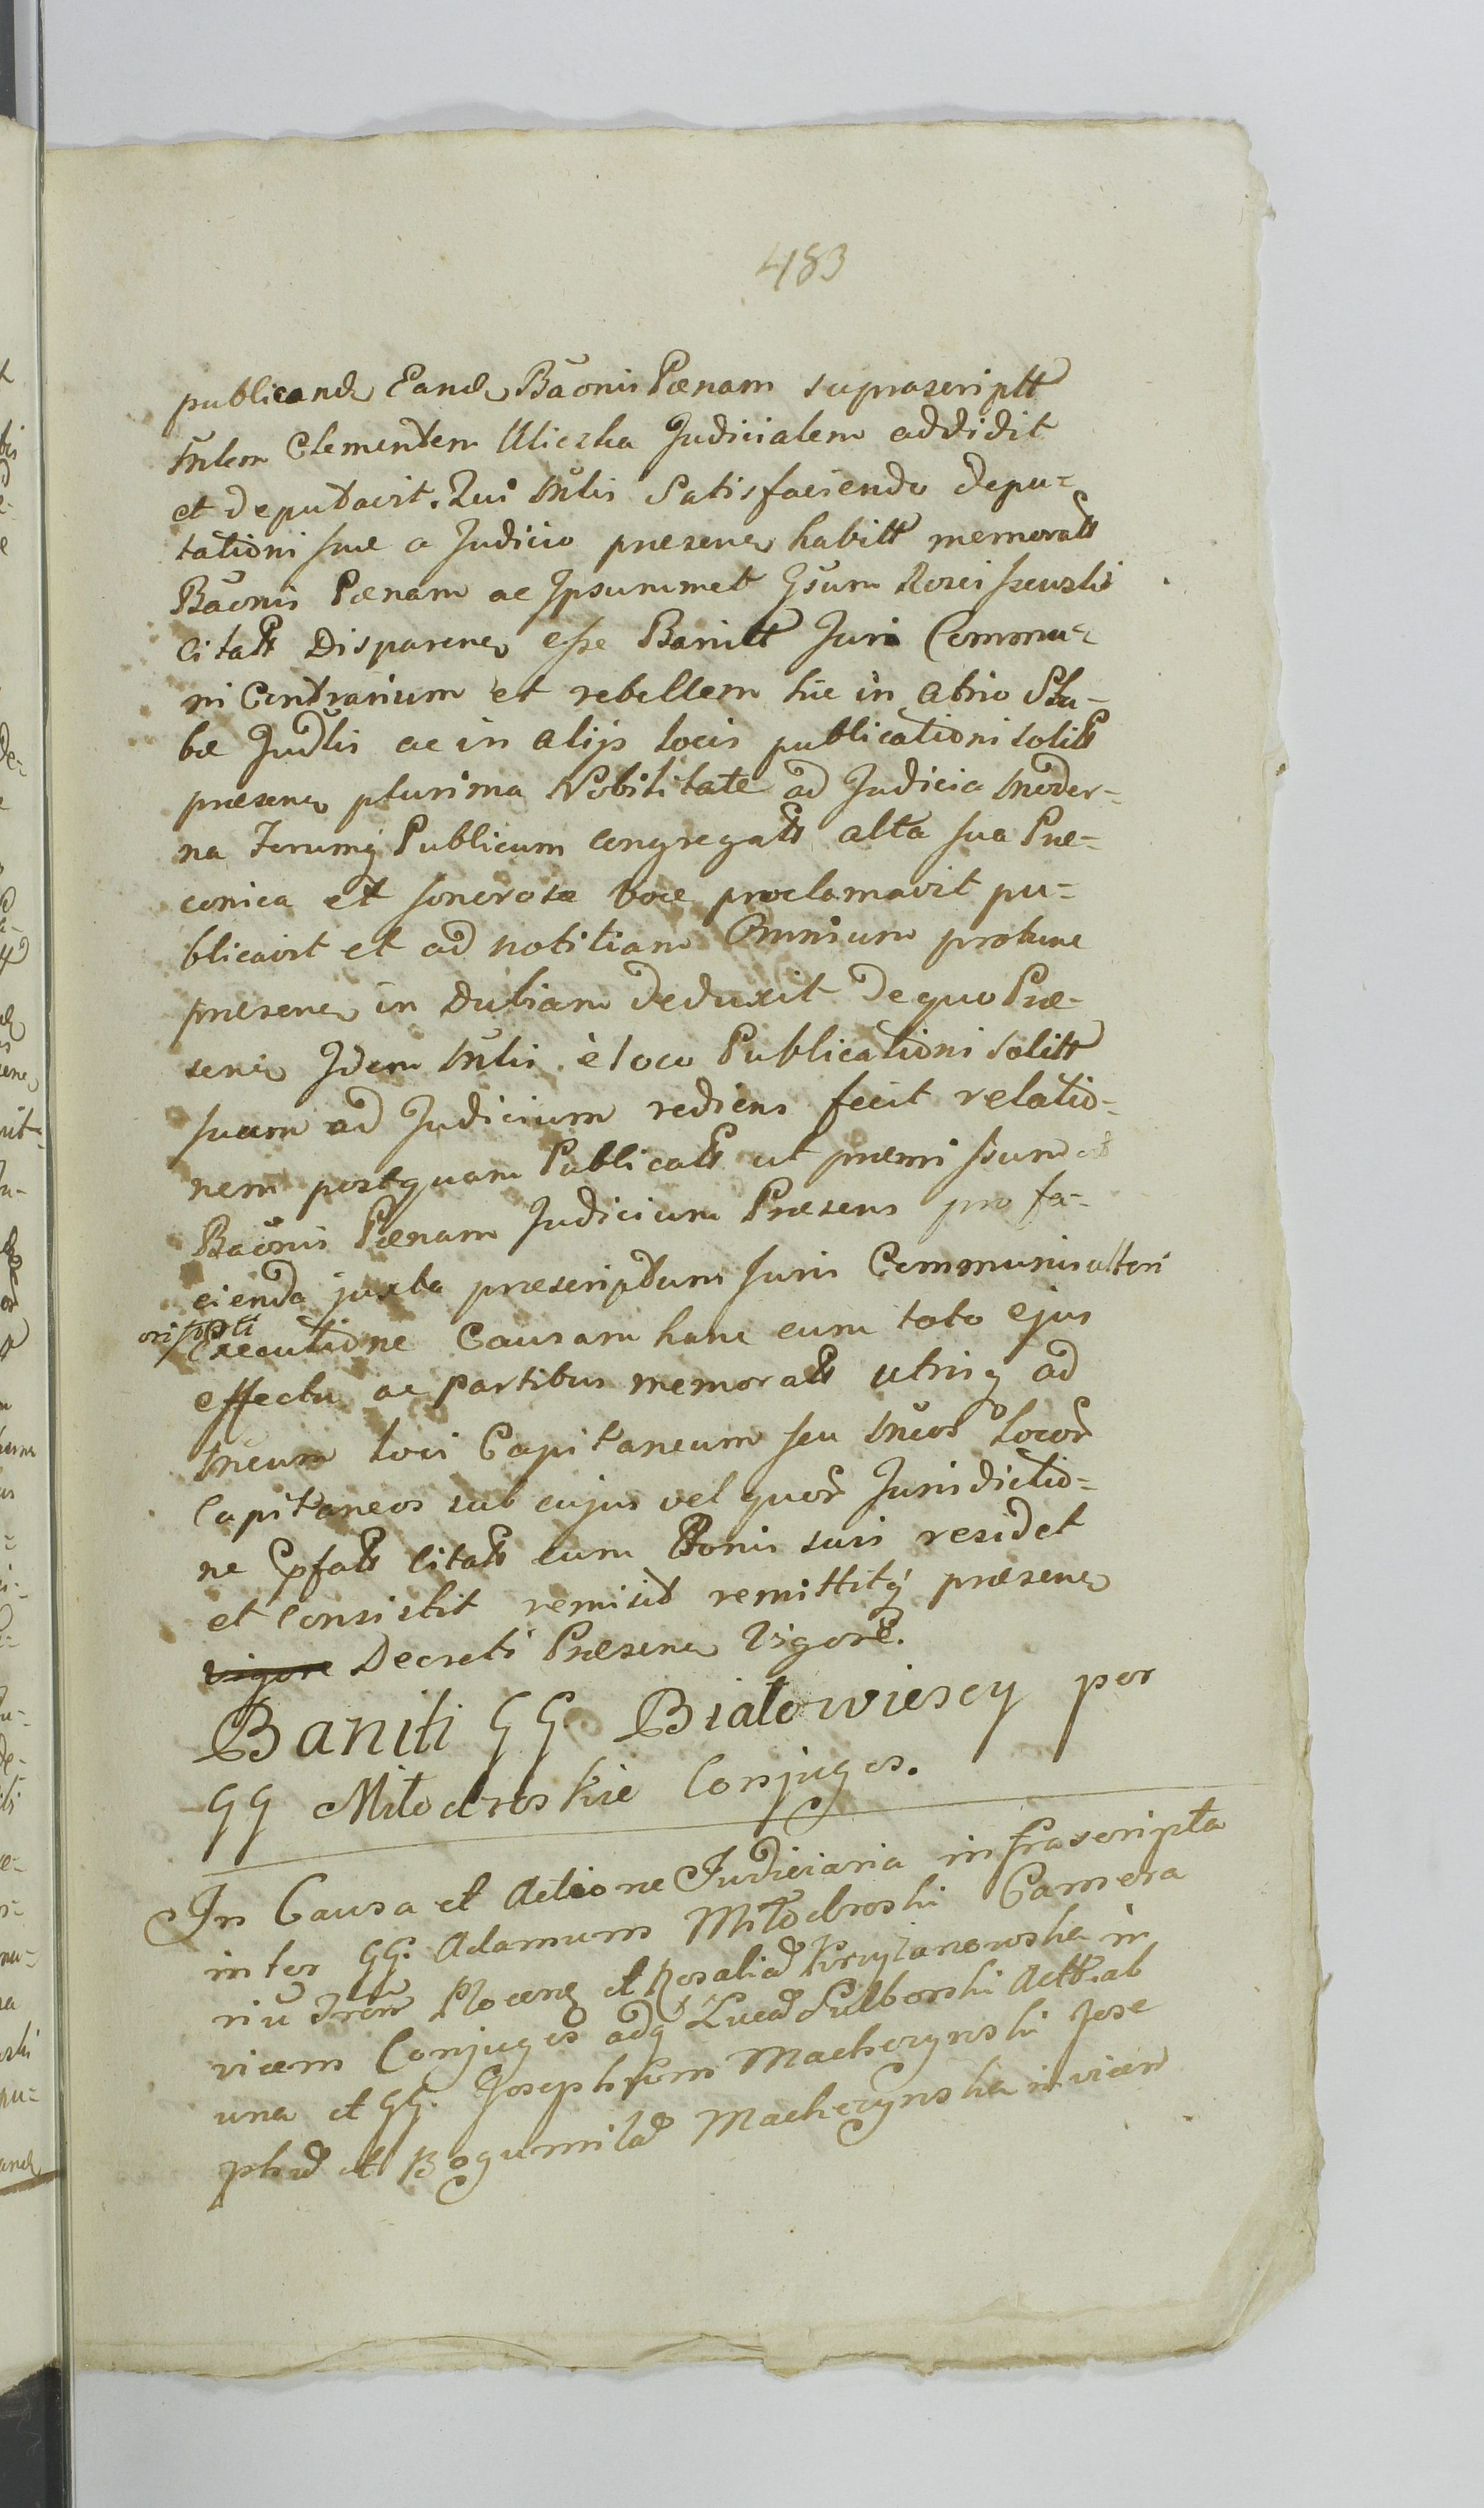 483
publicand Eand Bãonis Pœnam suprascriptt
Mlem Clementem Uliczka Judicialem addidit
et deputavit. Qui Mlis Satisfaciendo depu=
tationi suæ a Judicio præsen habitt memoratt
Bãonis Pœnam ac Ipsummet Gsum Rosciszewski
Citatt Disparen esse Banitt Juri Commu=
ni Contrarium et rebellem hic in atrio Stu-
bæ Judlis ac in alijs locis publicationi solitt
præsen plurima Nobilitate ad Judicia moder-
na Forumq Publicum congregatt alta sua Præ-
conica et sonorosa voce proclamavit pu=
blicavit et ad notitiam Omnium protunc
præsen in Dubiam deduxit de quo Præ-
sen Idem Mlis è loco Publicationi solitt
suam ad Judicium rediens fecit relatio-
nem postquam Publicatt ut præmissum est
Bãonis Pœnam Judicium Præsens pro fa-
cienda juxta præscriptum Juris Communis ulteri
ori Executione Causam hanc cum toto ejus
effectu ac partibus memoratt utrinq ad
Mcum loci Capitaneum seu Mcos locor
Capitaneos sub cujus vel quor Jurisdictio-
ne pfatt Citatt cum Bonis suis residet
et Consistit remisit remittitq præsen
vigore Decreti Præsen Vigore.
Baniti GG Białowiescy per
GG Miłodroskie Conjuges.
In Causa et Actione Judiciaria infrascripta
inter GG. Adamum Miłodroski Camera
riu Plocen et Rosaliã Krzyżanowska in
vicem Conjuges adq Lucã Sulborski Actt ab
una et GG. Josephum Macherzynski Jose
phũ et Bogumilã Macherzynska invicem